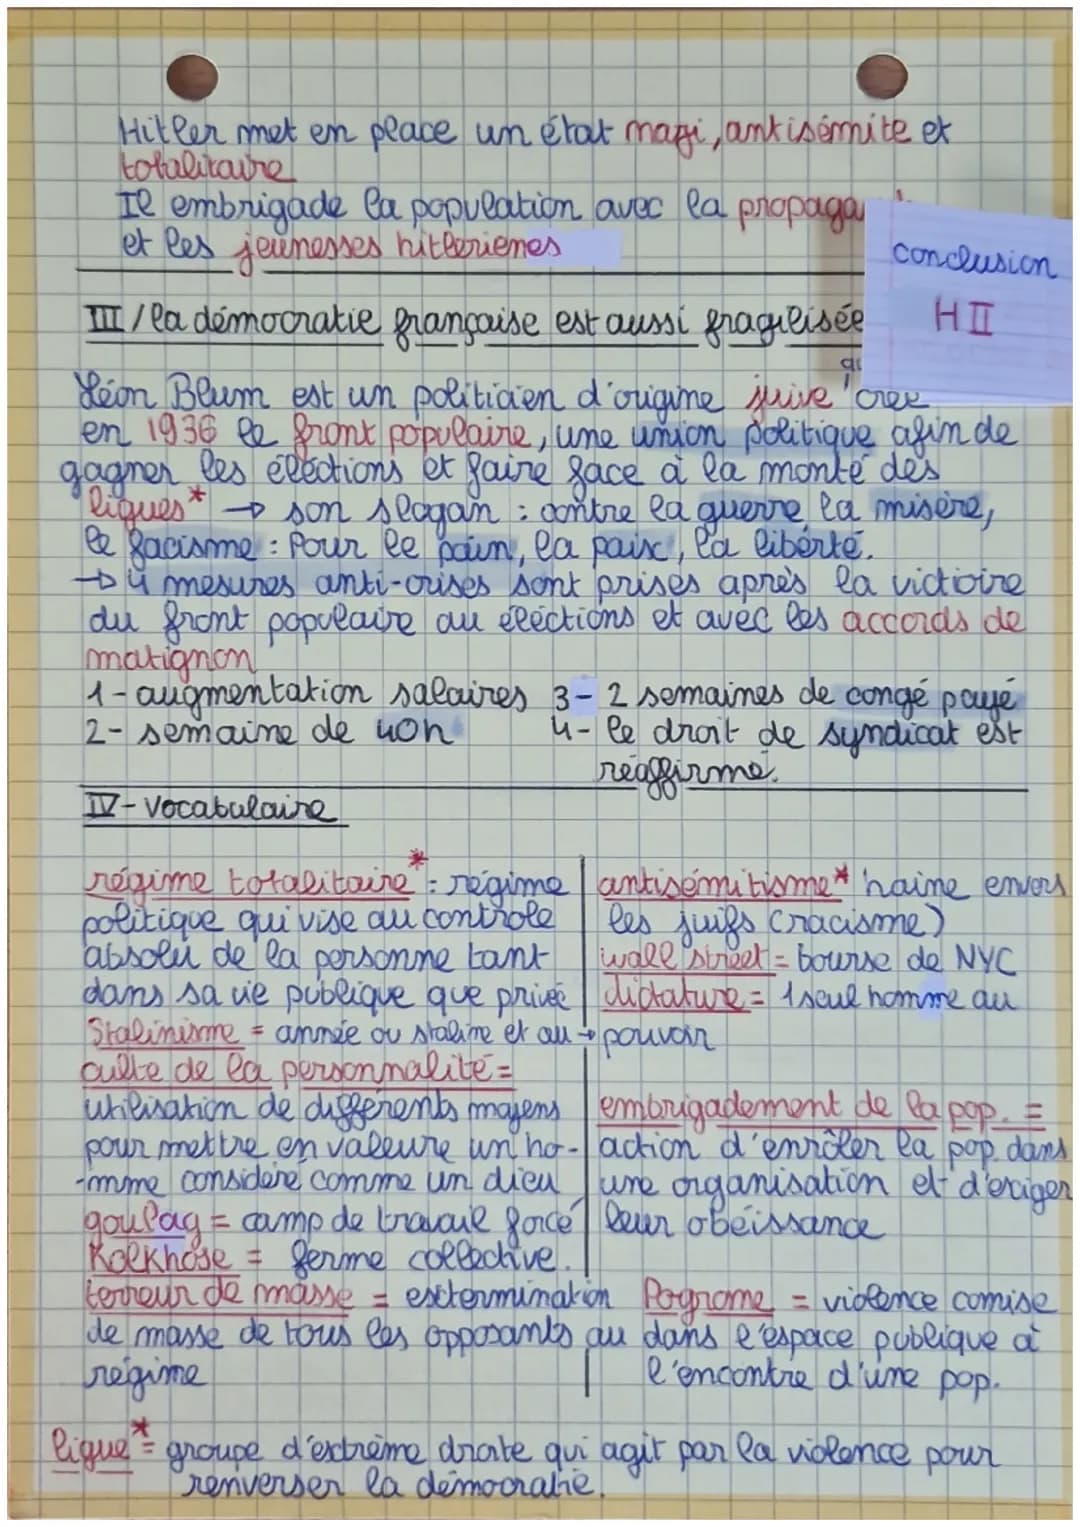 Hitler met en place un état nazi, antisémite et
totalitaire
Il embrigade la population avec la propaga
et les jeunesses hitleriènes
conclusion
H II
III / la démocratie française est aussi fragilisée
qu
Léon Blum est un politicien d'origine juive crée
en 1936 le front populaire, une union politique afin de
gagner les éléctions et faire face à la monté des
ligues* → son slogan : contre la guerre, la misère,
le facisme : Pour le pain, la paix, la liberté.
→ 4 mesures anti-crises sont prises après la victioire
du front populaire au éléctions et avec les accords de
matignon
1- augmentation salaires 3- 2 semaines de congé payé
2- semaine de 40h 4- le droit de syndicat est
réaffirmé.
IV- Vocabulaire
régime totalitaire* : régime
politique qui vise au controle
absolu de la personne tant
dans sa vie publique que privée
Stalinisme = année ou staline et au → pouvoir
culte de la personnalité =
utilisation de differents moyens
pour mettre en valeure un ho-
-mme considéré comme un dieu
goulag = camp de travail forcé
Kolkhose = ferme collective.
terreur de masse = extermination
de masse de tous les opposants au
régime
antisémitisme* haine envers
les juifs (racisme)
wall street = bourse de NYC
dictature = 1 seul homme au
embrigadement de la pop. =
action d'enrôler la pop. dans
une organisation et d'exiger
leur obéissance
Pogrome = violence comise
dans l'espace publique à
l'encontre d'une pop.
ligue* = groupe d'extrème droite qui agit par la violence pour
renverser la démocratie.